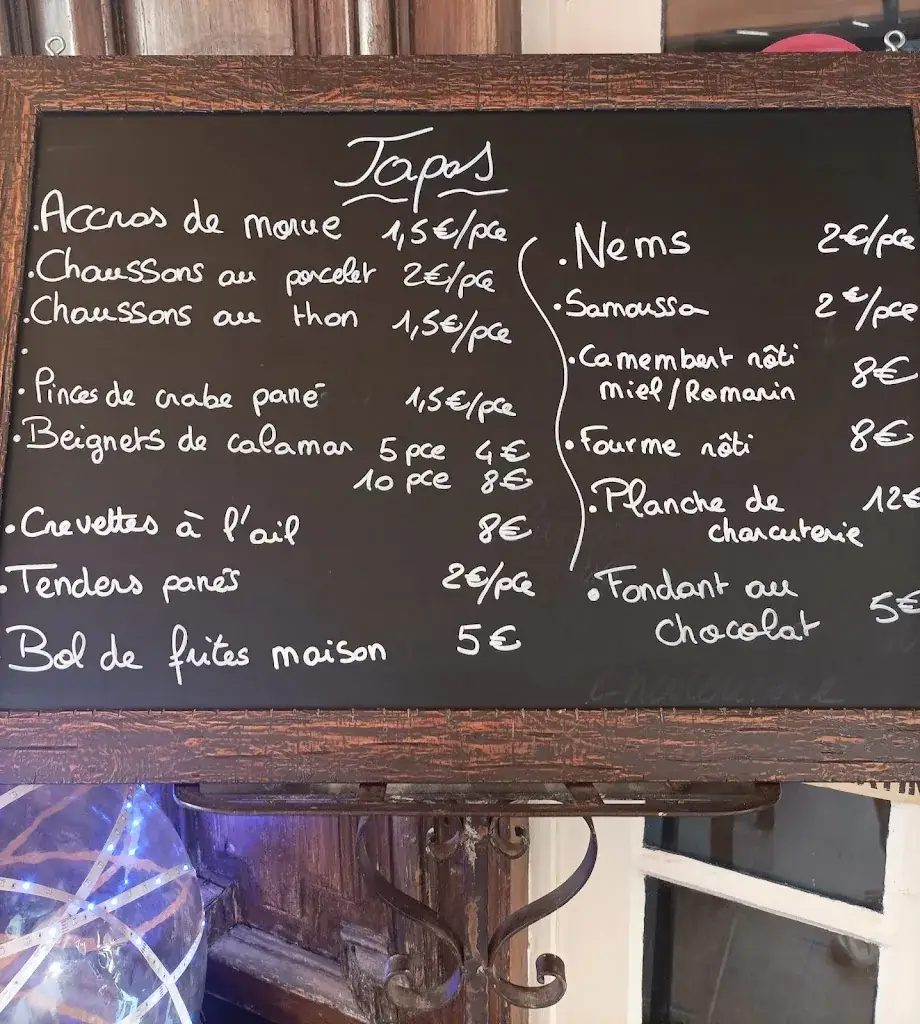 Tapas
.Accras de morue 1,5€/pce
.Chaussons au porcelet 2€/pce
.Chaussons au thon 1,5€/pce
.
.Pinces de crabe pané 1,5€/pce
.Beignets de calamar 5 pce 4€
10 pce 8€
.Crevettes à l'ail 8€
.Tenders panés 2€/pce
Bol de frites maison 5€
.Nems 2€/pce
.Samoussa 2€/pce
.Camembert rôti 8€
miel/Romarin
.Fourme rôti 8€
.Planche de 12€
charcuterie
.Fondant au
chocolat 5€